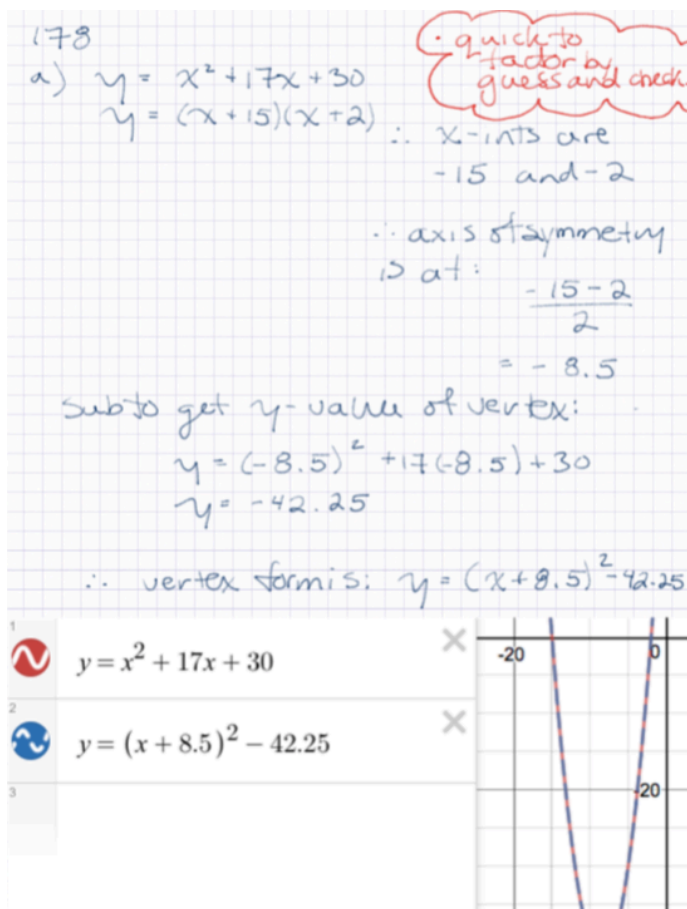 178
· quick to
factor by
guess and check
a) y = x² + 17x + 30
y = (x + 15)(x + 2)
∴ x-ints are
-15 and -2
∴ axis of symmetry
is at:
-15 - 2
2
= -8.5
sub to get y-value of vertex:
y = (-8.5)² + 17(-8.5) + 30
y = -42.25
∴ vertex form is: y = (x + 8.5)² - 42.25
1
y = x² + 17x + 30
2
y = (x + 8.5)² − 42.25
3
-20
0
-20